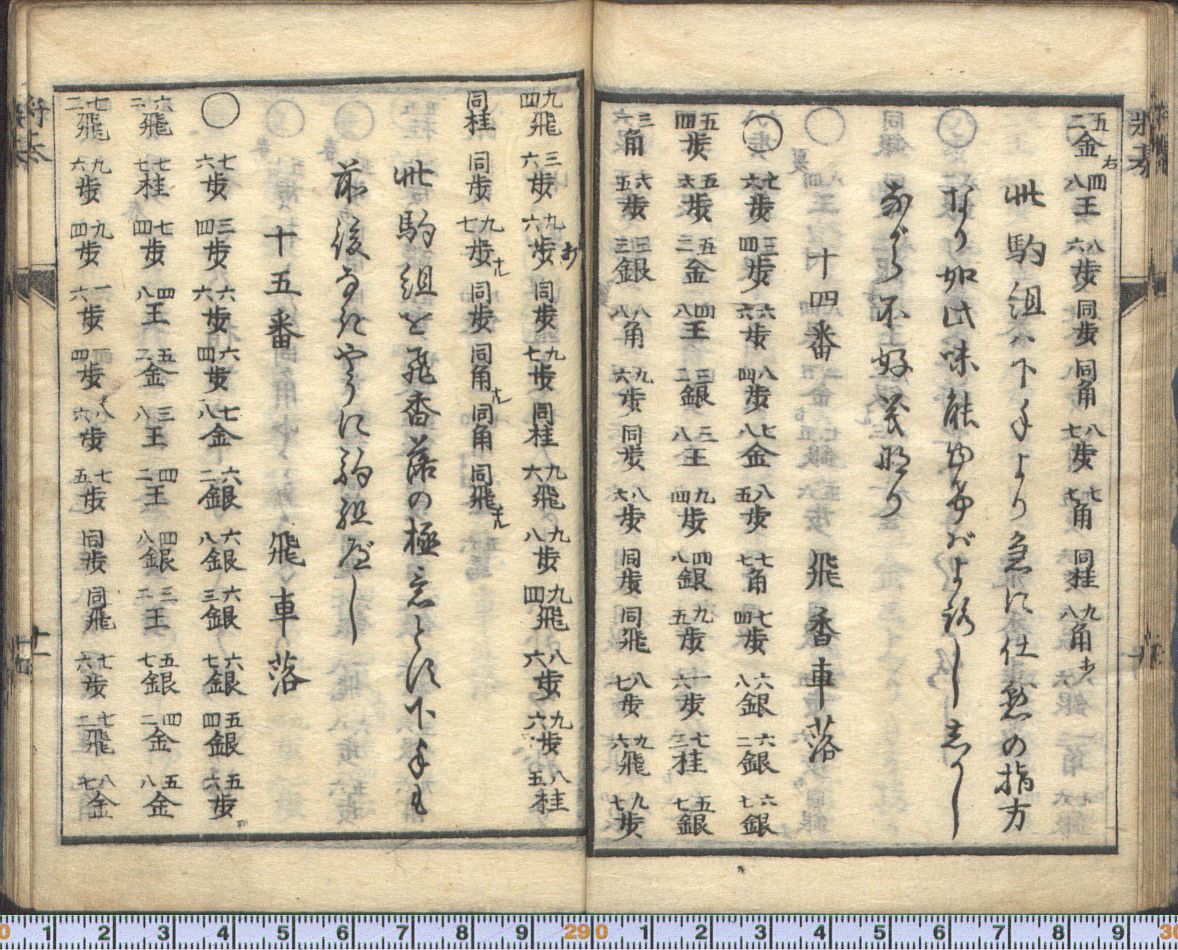 五二金右 四八王 八六歩 同歩 同角 八七歩 七七角 同桂 九八角打
此駒組ハ下手より急に仕懸の指方
なり如此味能
ながら不好義なり
十四番 飛香車落
〇 七六歩 三四歩 六六歩 八四歩 七八金 八五歩 七七角 七四歩 六八銀 六二銀 六七銀
五四歩 五六歩 五二金 四八王 三二銀 三八王 九四歩 四八銀 九五歩 一六歩 七三桂 五七銀
角 六五歩 三三銀 八八角 九六歩 同歩 八六歩 同歩 同飛 八七歩 九六飛 九七歩
九四飛 三六歩 九六歩打 同歩 九七歩 同桂 九六飛 九八歩 九四飛 八六歩 九六歩 八五桂
同桂 同歩 九七歩成 同歩 同角成 同角 同飛成
此駒組を飛香落の極意とす下手も
前後なきやうに駒組べし
十五番 飛車落
〇 七六歩 三四歩 六六歩 六四歩 七八金 六二銀 六八銀 六三銀 六七銀 五四銀 五六歩
六二飛 七七桂 七四歩 四八王 五二金 三八王 四二王 四八銀 三二王 五七銀 四二金 五八金
七二飛 九六歩 九四歩 一六歩 一四歩 八六歩 七五歩 同歩 同飛 七六歩 七二飛 八七金